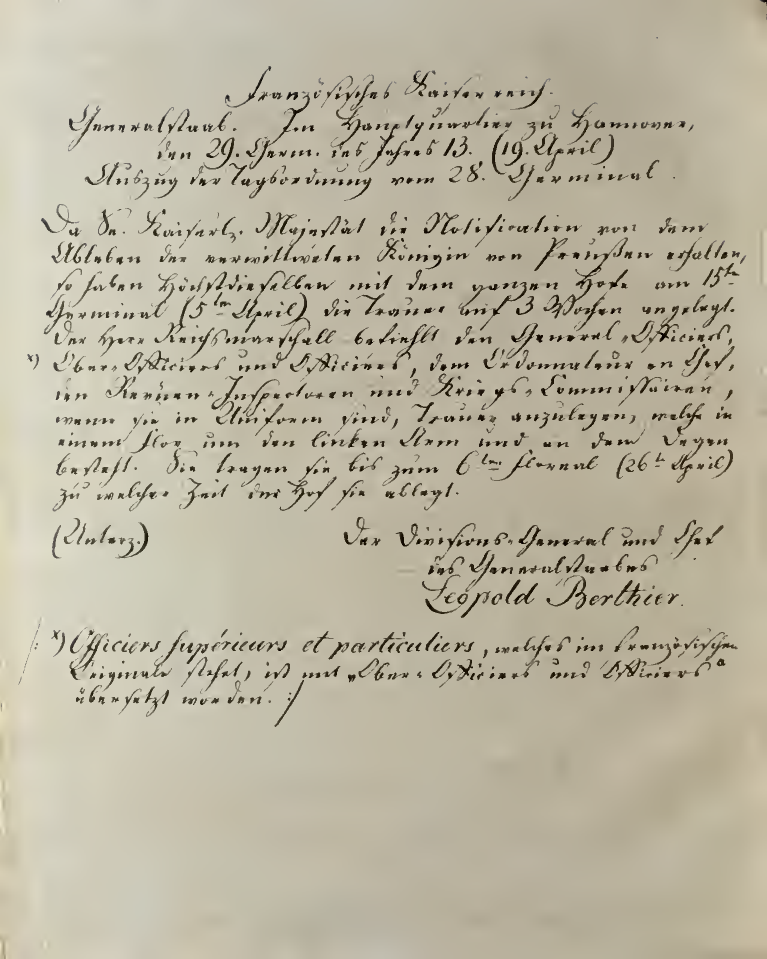 Französisches Kaiserreich.
Generalstaab. Im Hauptquartier zu Hannover,
den 29. Germ. des Jahres 13. (19. April)
Auszug der Tagsordnung vom 28. Germinal.
Da Se. Kaiserl. Majestät die Notification von dem
Ableben der verwittweten Königin von Preußen erhalten,
so haben Höchstdieselben mit dem ganzen Hofe am 15ten
Germinal (5ten April) die Trauer auf 3 Wochen angelegt.
Der Herr Reichsmarschall befiehlt den General-Officiers,
x) Ober-Officiers und Officiers, dem Ordonnateur en Chef,
den Revüen-Inspectoren und Kriegs-Commissairen,
wenn sie in Uniform sind, Trauer anzulegen, welche in
einem Flor um den linken Arm und an dem Degen
besteht. Sie tragen sie bis zum 6ten Floreal (26t April)
zu welcher Zeit der Hof sie ablegt.
(Unterz.) Der Divisions-General und Chef
des Generalstaabes
Leopold Berthier.
/: x) Officiers supérieurs et particuliers, welches im Französischen
Originale stehet, ist mit „Ober-Officiers und Officiers“
übersetzt worden. :/